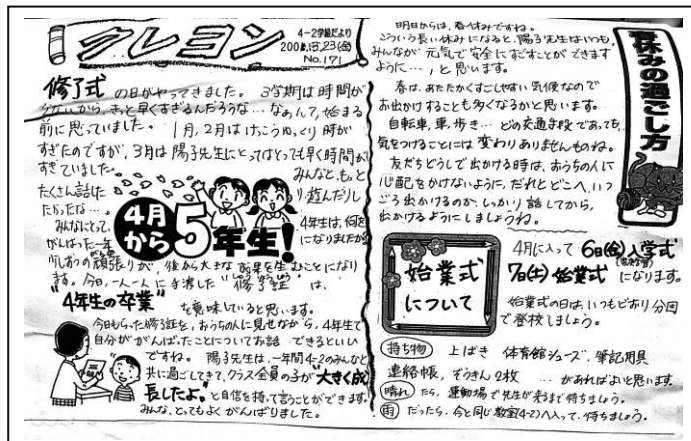 クレヨン
4-2学級だより
No.171
修了式 の日がやってきました。 3学期は時間が
少ないから、きっと早くすぎるんだろうな…なあんて、始まる
前に思っていました。 1月、2月はけっこうゆっくり時が
すぎたのですが、3月は陽子先生にとってはとっても早く時間が
すぎていました。 みんなと、もっと
たくさん話した り、遊んだりし
たかったな…。
4月から5年生!
みんなにとって、 4年生は、何
がんばった一年 になりましたか
の頑張りが、後から大きな 成果を生むことになり
ます。今日、一人一人に手渡した"修了証"は、
"4年生の卒業" を意味していると思います。
今日もらった修了証を、おうちの人に見せながら、4年生で
自分ががんばったことについてお話 できるといい
ですね。 陽子先生は、一年間4-2のみんなと
共に過ごしてきて、クラス全員の子が"大きく成
長したよ。"と自信を持って言うことができます。
みんな、とってもよくがんばりました。
春休みの過ごし方
明日からは、春休みですね。
こういう長い休みになると、陽子先生はいつも、
みんなが 元気で安全にすごすことができます
ように…、と思います。
春は、あたたかくすごしやすい気候なので
お出かけすることも多くなるかと思います。
自転車、車、歩き…どの交通手段であっても、
気をつけることには 変わりありませんものね。
友だちどうしで出かける時は、おうちの人に
心配をかけないように、だれとどこへ、いつ
ごろ出かけるのか、しっかり話してから、
出かけるようにしましょうね。
始業式について
4月に入って 6日(金)入学式
7日(土)始業式 になります。
始業式の日は、いつもどおり分団
で登校しましょう。
持ち物 上ばき 体育館シューズ、筆記用具
連絡帳、ぞうきん2枚 …があればよいと思います。
晴れ たら、運動場で先生が来るまで待ちましょう。
雨 だったら、今と同じ教室(4-2)へ入って、待ちましょう。